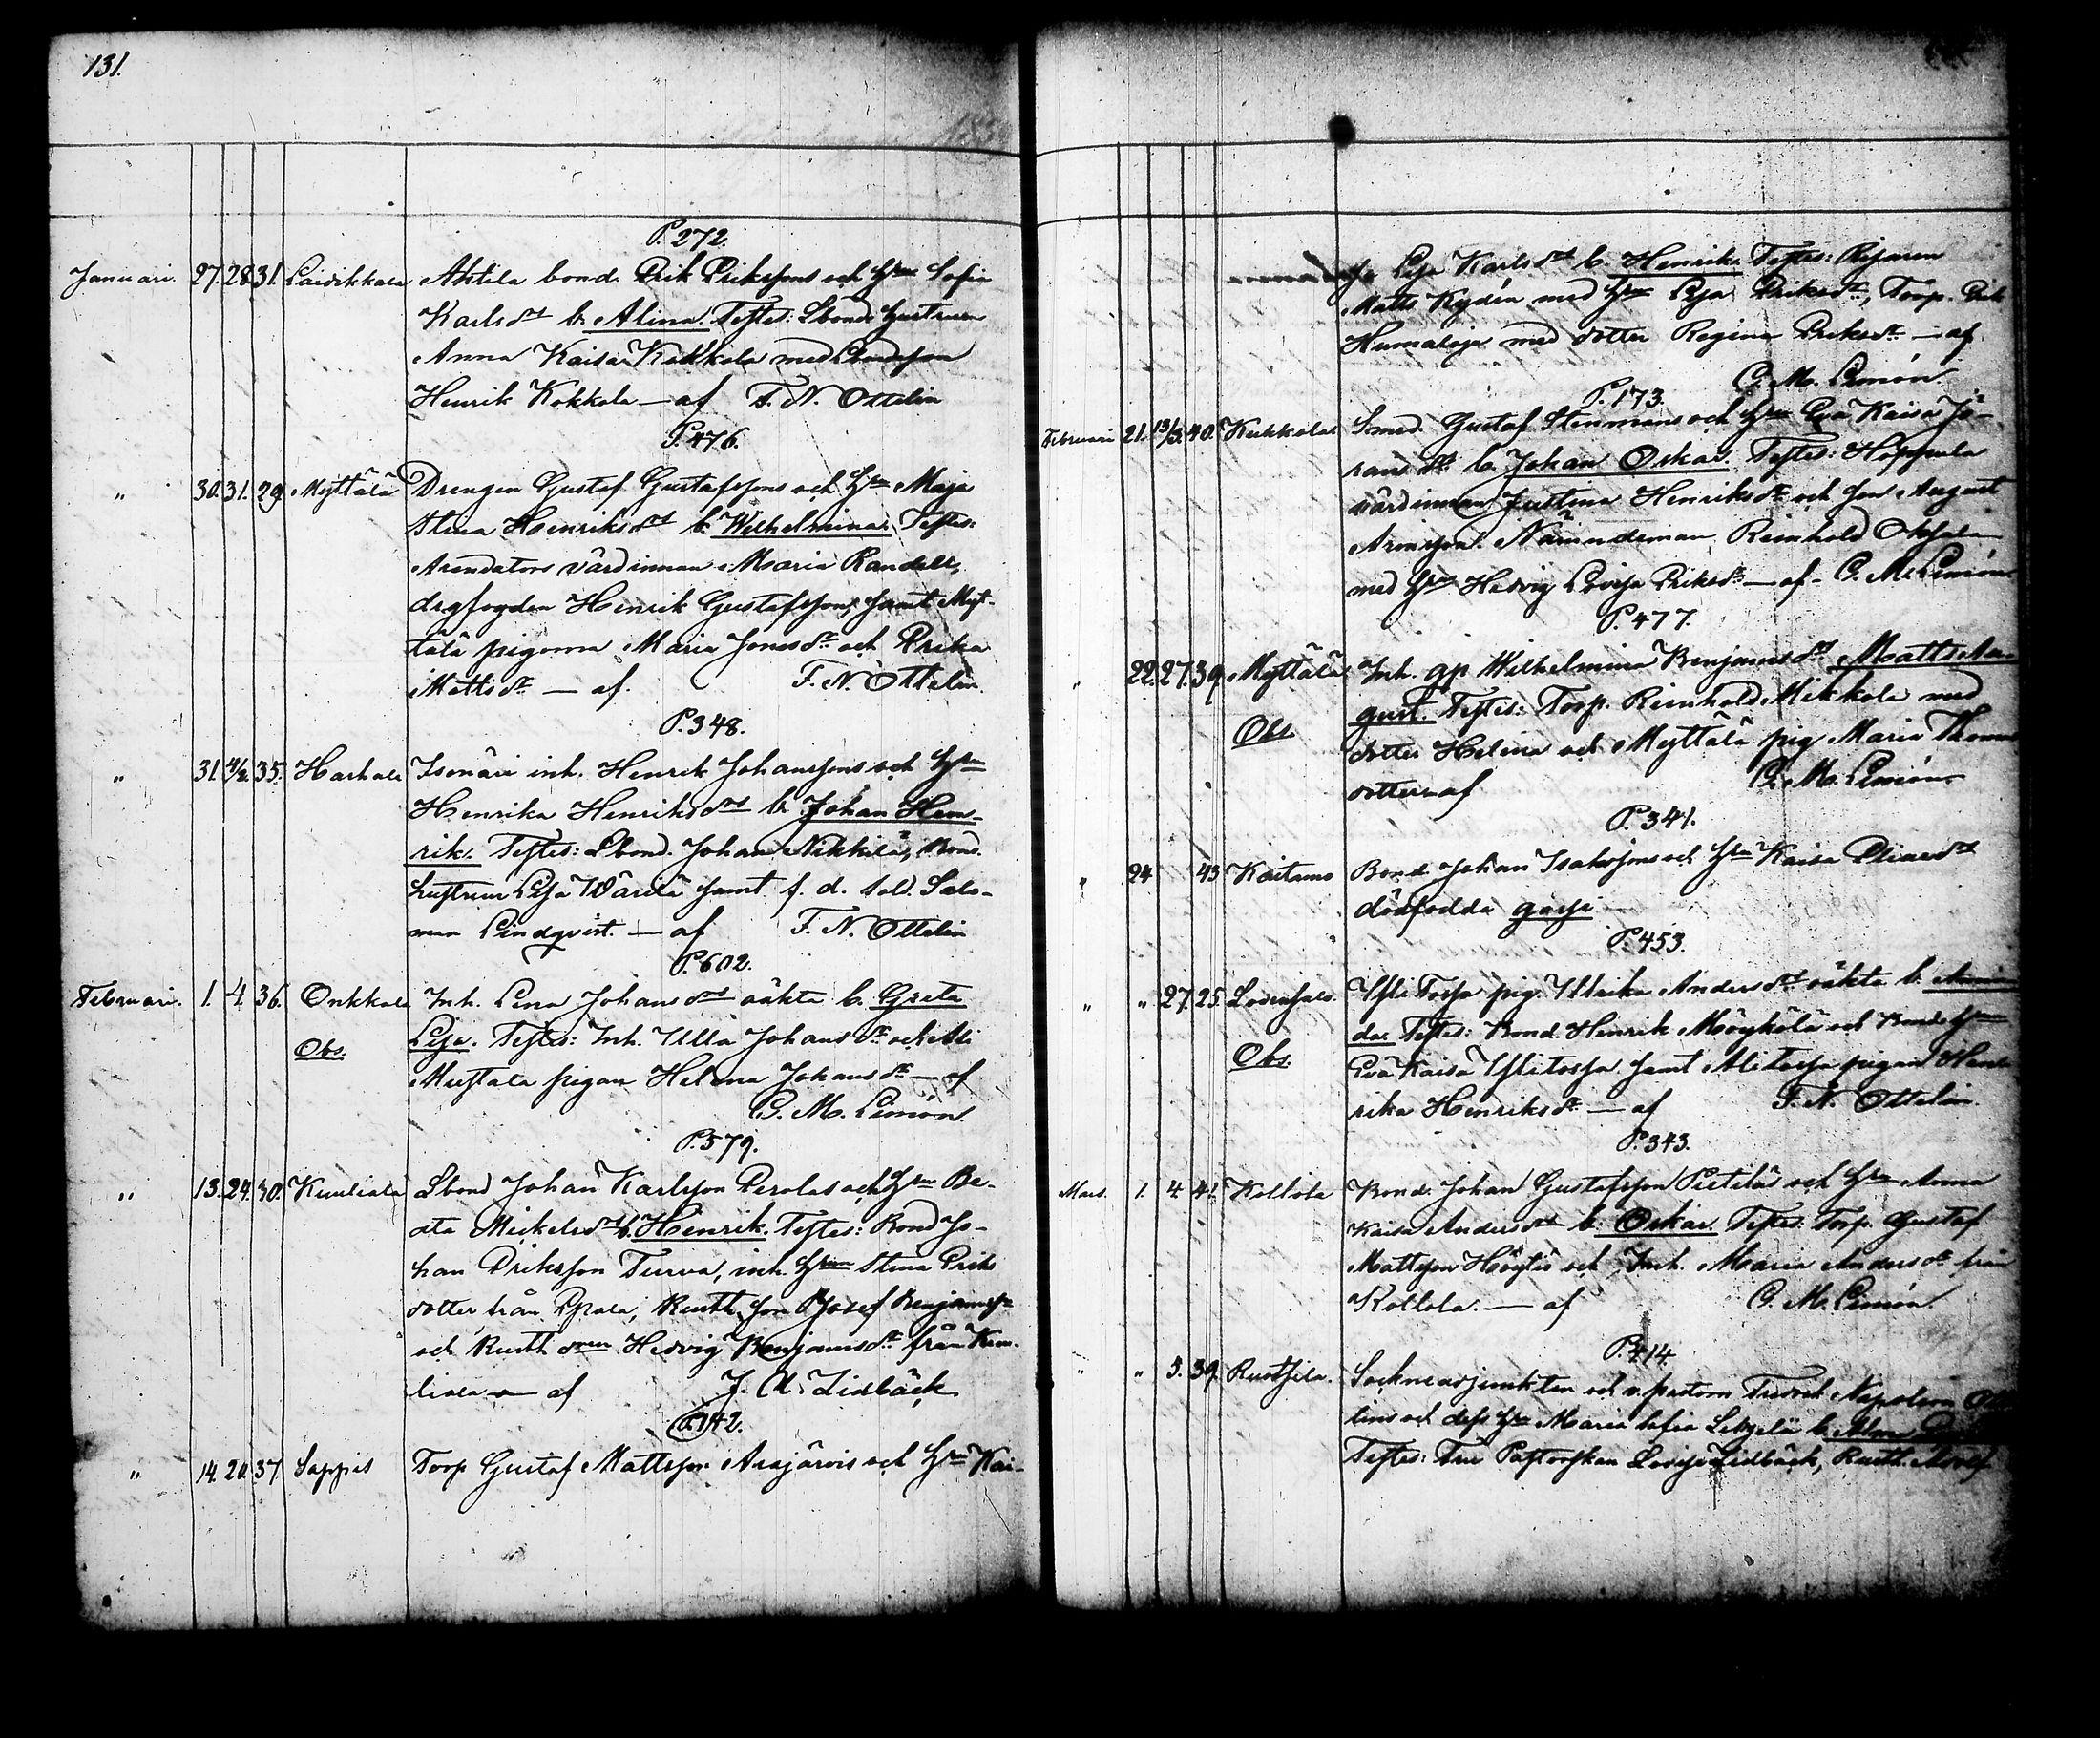 131.
P. 272.
Januari. 27. 28. 31. Laidikkala Ahtila bond. Erik Eriksons och Hru Sofia
Karlsdr b. Alina. Testes: Lbonde hustrun
Anna Kaisa Kokkola med
Henrik Kokkola — af F. N. Ottelin
P. 476.
" 30. 31. 29. Myttälä Drengen Gustaf Gustafssons och Hru Maja
Stina Henriksdr b. Wilhelmina. Testes:
Arendators värdinnan Maria Randell,
drgfogden Henrik Gustafsson, samt Myt-
tälä pigorna Maria Jonsdr och Erika
Mattsdr — af. F. N. Ottelin.
P. 348.
" 31. 4/2. 35. Harhala Isonäri inh. Henrik Johanssons och Hru
Henrika Henriksdr b. Johan Hen-
rik. Testes: Lbond. Johan Nikkilä, Bond.
hustrun Lisa Wärilä samt f. d. sold. Salo-
mon Lindqvist. — af F. N. Ottelin
P. 602.
Februari. 1. 4. 36. Onkkala Inh. Lena Johansdr oäkta b. Greta
Obs. Lisa. Testes: Inh. Ulla Johansdr och Ali
Mustala pigan Helena Johansdr — af
C. M. Limón.
P. 579.
" 13. 24. 40. Kuuliala Lbond Johan Karlsson Perolas och Hru Be-
ata Mickelsdr b. Henrik. Testes: Bond Jo-
han Eriksson Turva, inh. Hrun Stina Eriks
dotter från Epala, Rusth. son Josef Benjamss
och Rusth dren Hedvig Benjamsdr från Kuu-
liala — af J. A. Zidbäck
P. 142.
" 14. 20. 37. Sappis Torp Gustaf Mattsson Arajärvis och Hru Kai-
sa Lisa Karlsdr b. Henrik. Testes:
Matts Kydén med Hru Lisa Eriksdr, Torp. Erik
Humaloja med dotter Regina Eriksdr — af
C. M. Limón.
P. 173.
Februari 21. 13/3. 40. Kukkola Smed. Gustaf Stenmans och Hru Eva Kaisa Jö-
ransdr b. Johan Oskar. Testes: Hoppula
värdinnan Justina Henriksdr och son August
Aronsson. Nämndeman Reinhold
med Hru Hedvig Lovisa Eriksdr — af — C. M. Limón.
P. 477.
" 22. 27. 39. Myttälä Inh. gp Wilhelmina Benjamsdr Matts Au-
Obs. gust. Testes: Torp. Reinhold Mikkola med
dotter Helena och Myttälä pig Maria Thomas
dotter — af C. M. Limón
P. 341.
" 24 43 Kaitamo Bond. Johan Isakssons och Hru Kaisa Eliaedr
dödfödda gosse —
P. 453.
" " 27. 25. Ylitorpa pig. Ulrika Andersdr oäkta b. Aman-
Obs. da. Testes: Bond. Henrik Möykälä och Bonde Hru
Eva Kaisa Ylitorpa samt Alitorpa pigan Hen-
rika Henriksdr — af F. N. Ottelin.
P. 343.
Mars. 1. 4. 41. Kollola Bond. Johan Gustafsson Pietiläs och Hru Anna
Kaisa Andersdr b. Oskar. Testes: Torp. Gustaf
Mattsson Höytis och Inh. Maria Andersdr från
Kollola. — af C. M. Limón.
P. 414.
" " 5. 39. Rustsila. Socknesadjunkten och v. pastorn Fredrik Napoleon
lins och dess Hru Maria Sofia b.
Testes: Fru Pastorskan Lovisa Zidbäck, Rusth. Adolf